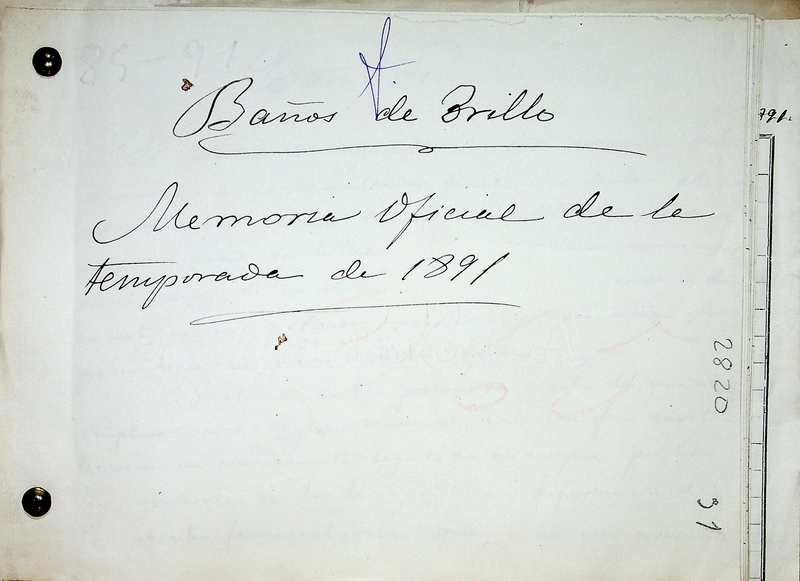 Baños de Brillo
Memoria Oficial de la
temporada de 1891
2820
31